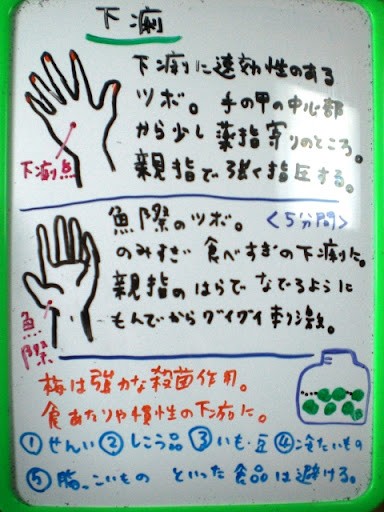 下痢
下痢に速効性のある
ツボ。手の甲の中心部
から少し薬指寄りのところ。
親指で強く指圧する。
下痢点
魚際のツボ。<5分間>
のみすぎ食べすぎの下痢に。
親指のはらでなでるように
もんでからグイグイ刺激。
魚際
梅は強力な殺菌作用。
食あたりや慣性の下痢に。
①せんい②しこう品③いも・豆④冷たいもの
⑤脂っこいもの といった食品は避ける。